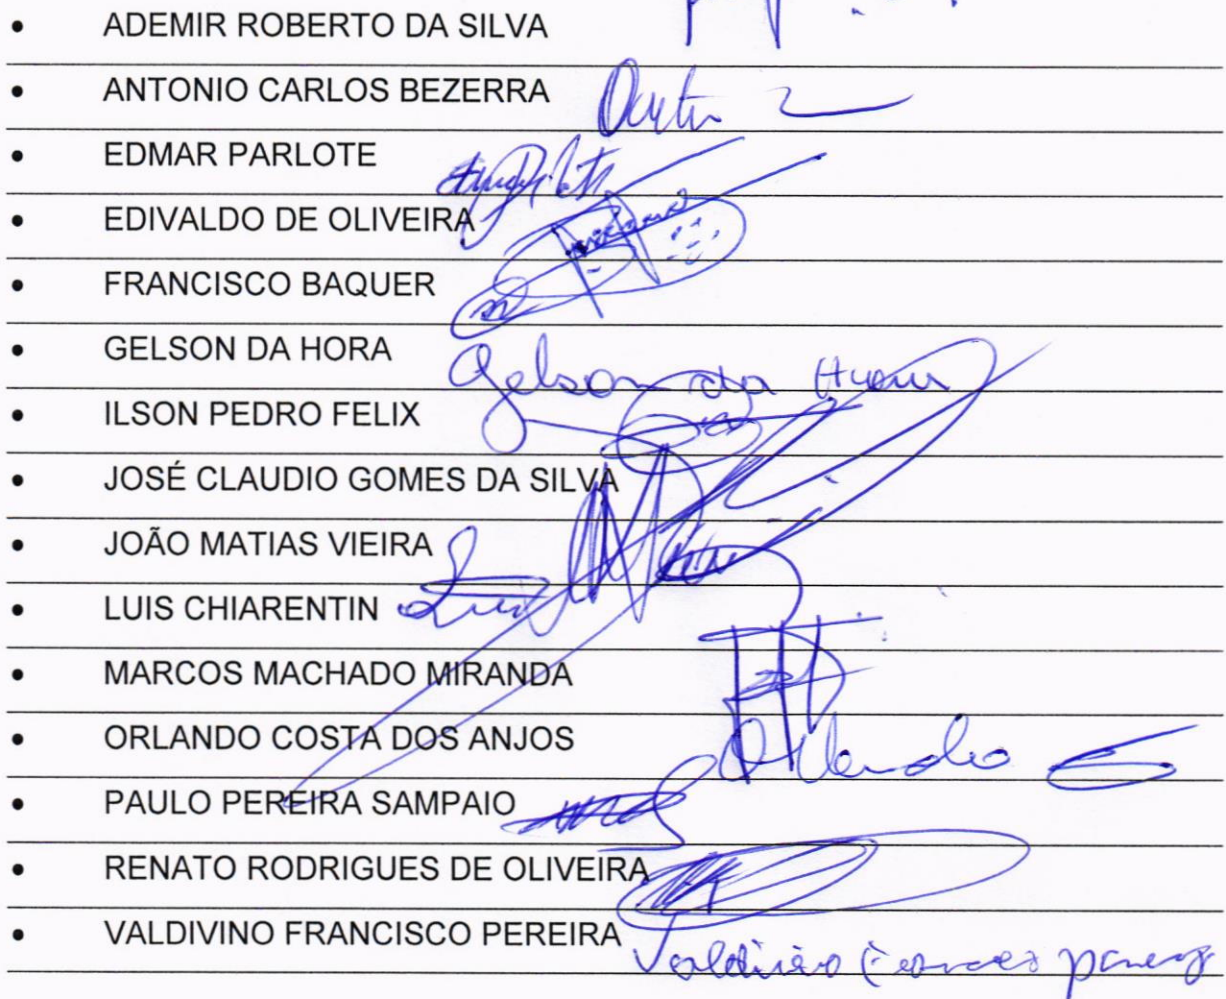 • ADEMIR ROBERTO DA SILVA
• ANTONIO CARLOS BEZERRA
• EDMAR PARLOTE
• EDIVALDO DE OLIVEIRA
• FRANCISCO BAQUER
• GELSON DA HORA
Gelson da Hora
• ILSON PEDRO FELIX
• JOSÉ CLAUDIO GOMES DA SILVA
• JOÃO MATIAS VIEIRA
• LUIS CHIARENTIN Luis
• MARCOS MACHADO MIRANDA
• ORLANDO COSTA DOS ANJOS
Orlando
• PAULO PEREIRA SAMPAIO
• RENATO RODRIGUES DE OLIVEIRA
• VALDIVINO FRANCISCO PEREIRA